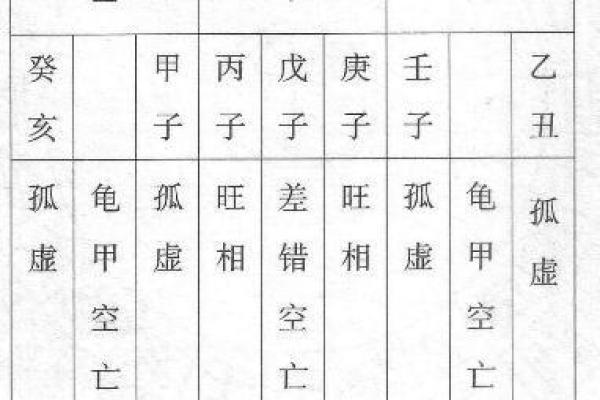 癸亥
甲子
丙子
戊子
庚子
壬子
乙丑
孤虚
龟甲空亡
孤虚
旺相
差错空亡
旺相
孤虚
龟甲空亡
孤虚